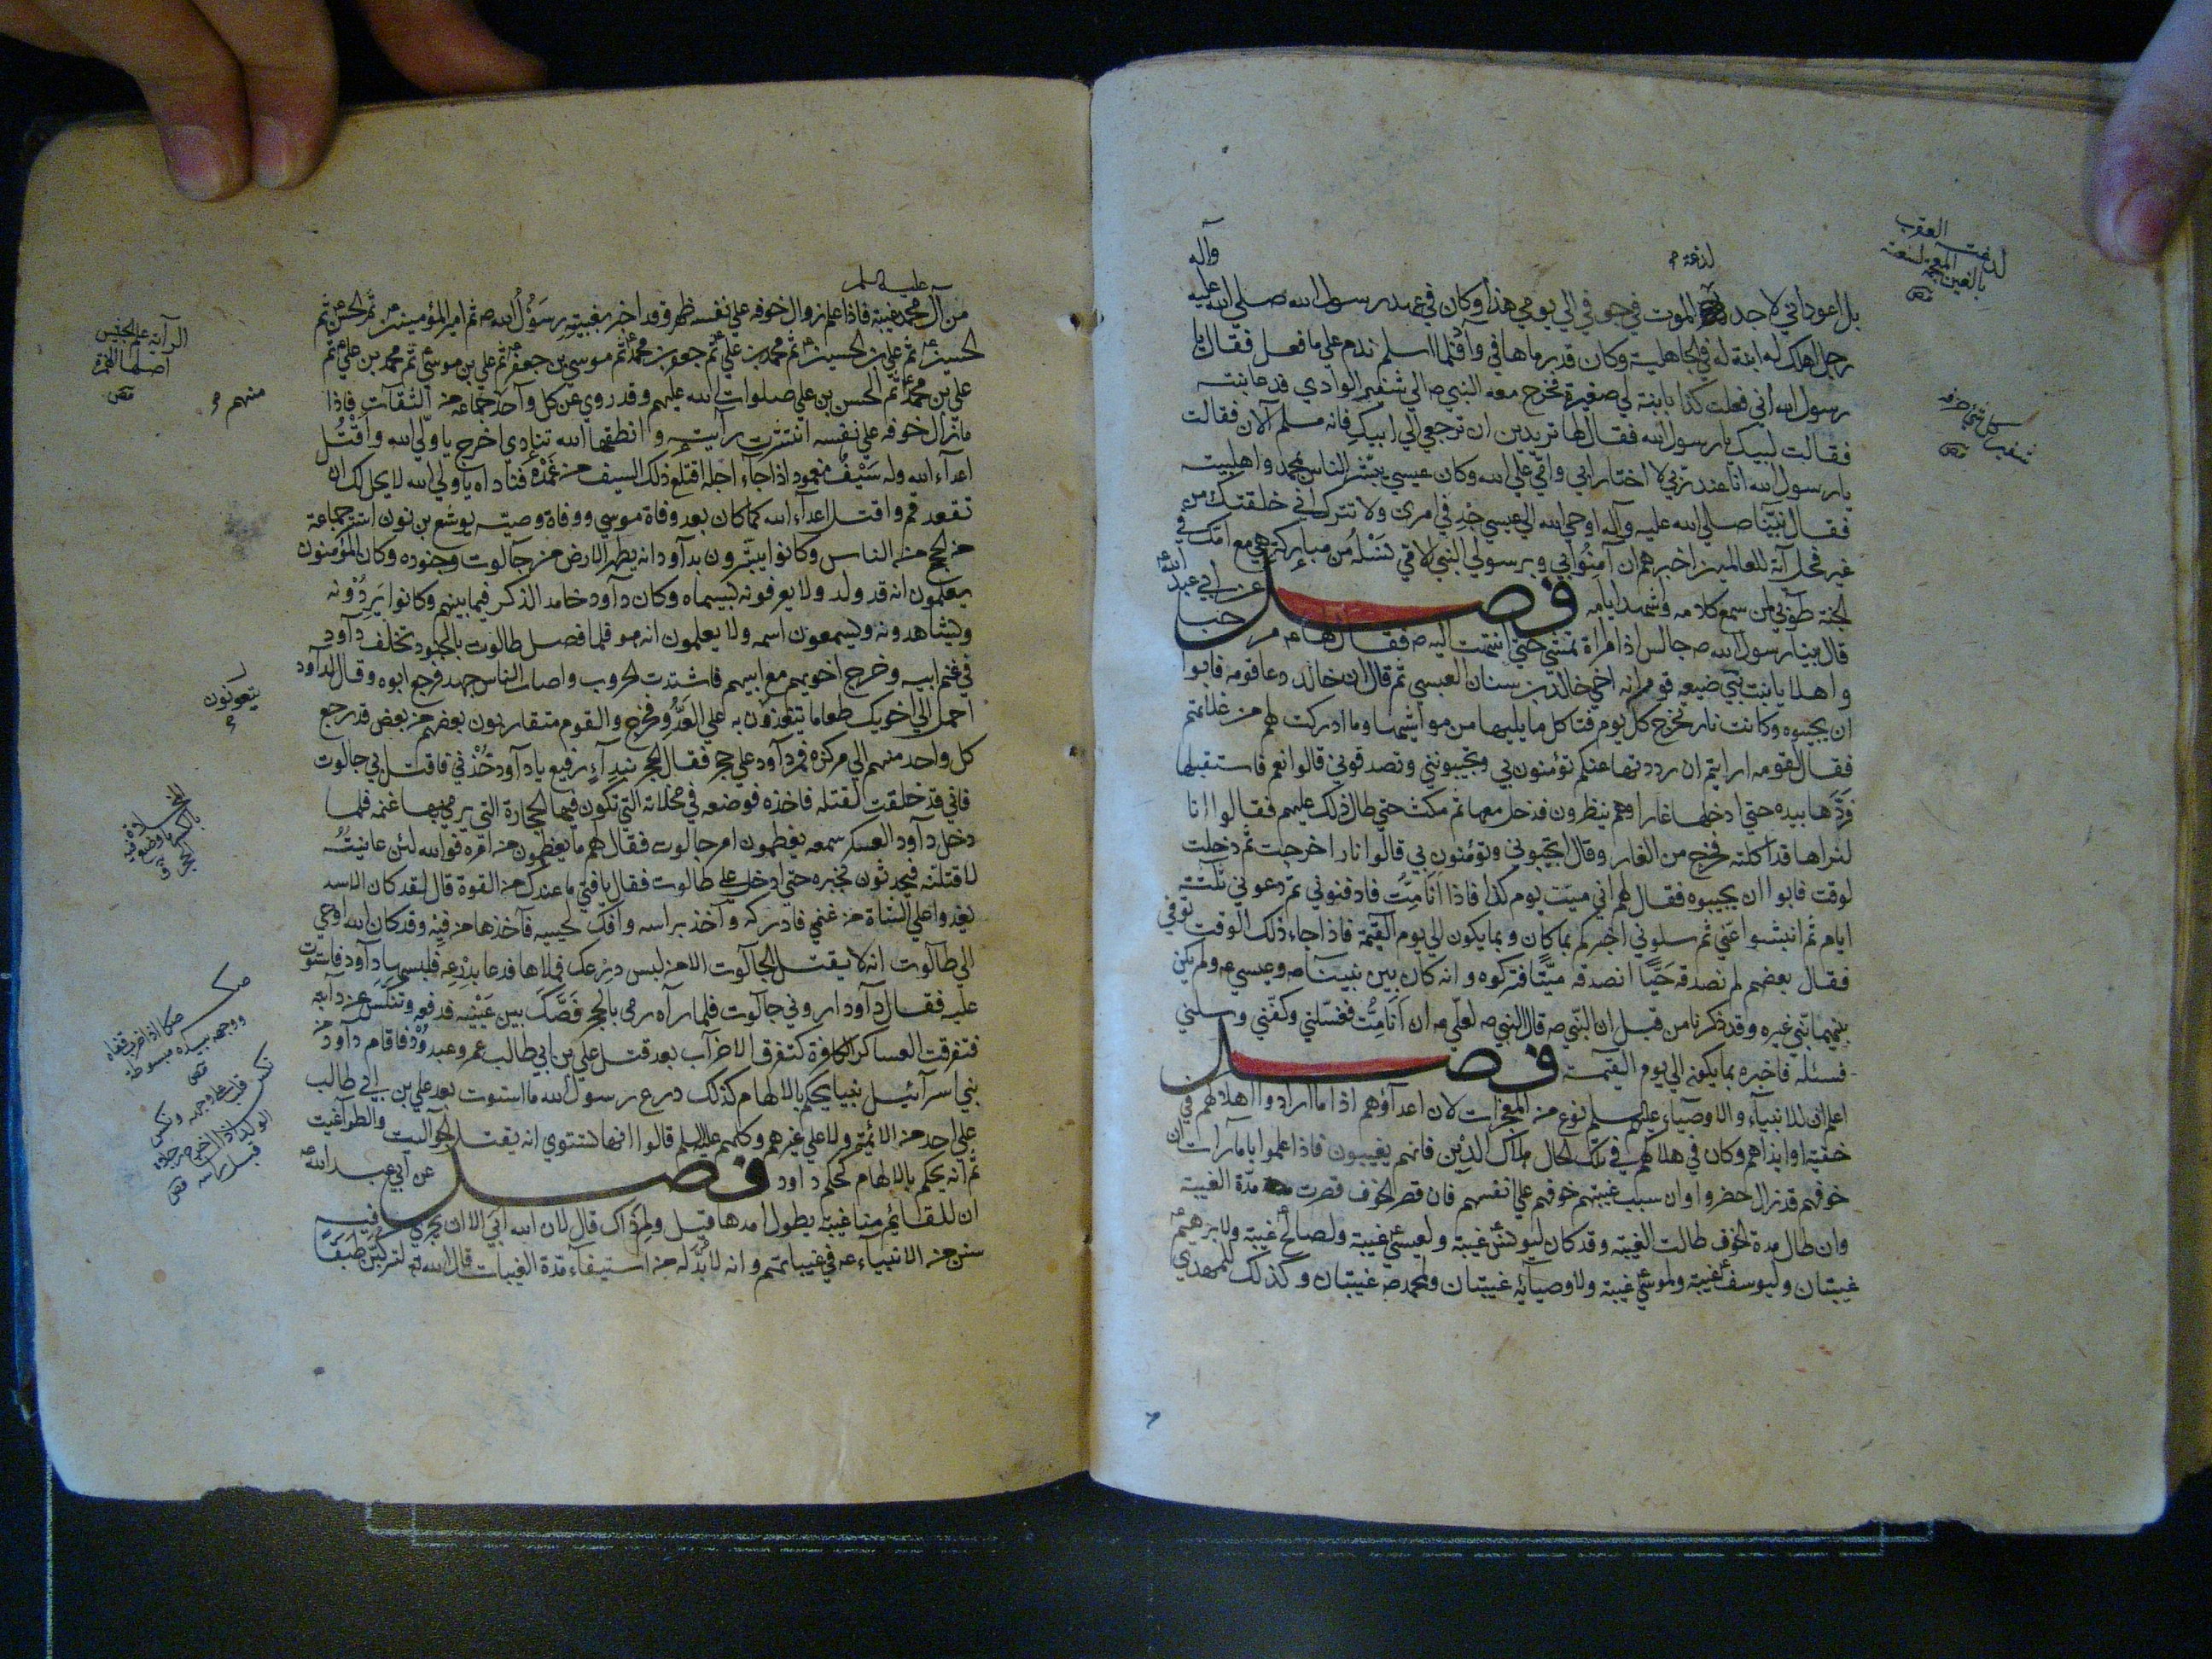 وآله
لدغة
بل اعود اني لاجد الموت في جوفي الي يومي هذا وكان في عهد رسول الله صلي الله عليه
رجل هلك له ابنة له في الجاهلية وكان قد رماها في واد فلما اسلم ندم علي ما فعل فقال يا
رسول الله اني فعلت كذا بابنة لي صغيرة فخرج معه النبي ص الي شفير الوادي فدعا بنته
فقالت لبيك يا رسول الله فقال لها تريدين ان ترجعي الي ابيك فانه مسلم الآن فقالت
يا رسول الله انا عند ربي لا اختار ابي وامي علي الله وكان عيسي يبشر الناس بمحمد واهل بيته
فقال نبينا صلي الله عليه وآله اوحي الله الي عيسي جد في امري ولا تترك اني خلقتك من
غير فحل آية للعالمين اخبرهم ان آمنوا بي وبرسولي النبي الامي نسله من مباركة هي مع امك في
الجنة طوبي لمن سمع كلامه وشهد ايامه فصل عن ابي عبد الله ع
قال بينا رسول الله ص جالس اذا امراة تمشي حتي انتهت اليه ص فقال لها ع مرحبا
واهلا يا بنت نبي ضيعه قومه انه اخي خالد بن سنان العبسي ثم قال ان خالد دعا قومه فابوا
ان يجيبوه وكانت نار تخرج كل يوم فتاكل ما يليها من مواشيها وما ادركت لهم من غلاتهم
فقال لقومه ارايتم ان رددتها عنكم تؤمنون بي وتجيبونني وتصدقوني قالوا نعم فاستقبلها
فردها بيده حتي ادخلها غارا وهم ينظرون فدخل معها ثم مكث حتي طال ذلك عليهم فقالوا انا
لنراها قد اكلته فخرج من الغار وقال اتجيبوني وتؤمنون بي قالوا نار اخرجت ثم دخلت
لوقت فابوا ان يجيبوه فقال لهم اني ميت يوم كذا فاذا انا مت فادفنوني ثم دعوني ثلثة
ايام ثم انبشوا عني ثم سلوني اخبركم بما كان وبما يكون الي يوم القيمة فاذا جاء ذلك الوقت توفي
فقال بعضهم لم نصدقه حيا انصدقه ميتا فتركوه وانه كان بين نبينا ص وعيسي ع ولم يكن
بينهما نبي غيره وقد ذكرنا من قبل ان النبي ص قال النبي ص لعلي ع ان انا مت فغسلني وكفني وسلني
فسئله فاخبره بما يكون الي يوم القيمة فصل
اعلم ان للانبياء والاوصياء عليهم السلم نوع من المعجزات لان اعداؤهم اذا ما ارادوا اهلاكهم في
خفية او ايذاهم وكان في هلاكهم في تلك الحال هلاك الدين فانهم يغيبون فاذا علموا بامارات ان
خوفهم قد زال حضروا وان سبب غيبتهم خوفهم علي انفسهم فان قصر الخوف قصرت مدة الغيبة
وان طال مدة الخوف طالت الغيبة وقد كان ليونس غيبة ولعيسي غيبة ولصالح غيبة ولابرهيم
غيبتان وليوسف غيبة ولموسي غيبة ولاوصيائه غيبتان ولمحمد ص غيبتان وكذلك للمهدي
لدغته العقرب
بالغين المعجمة لسعته
شفير كل شئ حرفه
عليه السلم
من آل محمد غيبة فاذا علم زوال خوفه علي نفسه ظهر وقد اخبر بغيبته رسول الله ص ثم امير المؤمنين ع ثم الحسن ع ثم
الحسين ع ثم علي بن الحسين ع ثم محمد بن علي ع ثم جعفر بن محمد ع ثم موسي بن جعفر ع ثم علي بن موسي ع ثم محمد بن علي ع ثم
علي بن محمد ع ثم الحسن بن علي صلوات الله عليهم وقد روي عن كل واحد جماعة من الثقات فاذا
ما زال خوفه علي نفسه انتشرت رايته و انطقها الله تنادي اخرج يا ولي الله واقتل
اعداء الله وله سيف مغمود اذا جاء اجله اقتلع ذلك السيف من غمده فناداه يا ولي الله لا يحل لك ان
تقعد قم واقتل اعداء الله كما كان بعد وفاة موسي ووفاة وصيه يوشع بن نون استتر جماعة
من الحجج من الناس وكانوا يبشرون بداود انه يطهر الارض من جالوت وجنوده وكان المؤمنون
يعلمون انه قد ولد ولا يعرفونه بسيماه وكان داود خامد الذكر فيما بينهم وكانوا يردونه
ويشاهدونه ويسمعون اسمه ولا يعلمون انه هو فلما فصل طالوت بالجنود تخلف داود
في غنم ابيه وخرج اخويهم مع ابيهم فاشتدت الحروب واصاب الناس جهد فرجع ابوه وقال لداود
احمل الي اخويك طعاما يتغذون به علي العدو فخرج والقوم متقاربون بعضهم من بعض قد رجع
كل واحد منهم الي مركزه فمر داود علي حجر فقال الحجر بنداء رفيع يا داود خذني فاقتل بي جالوت
فاني قد خلقت لقتله فاخذه فوضعه في مخلاته التي تكون فيها الحجارة التي يرمي بها غنمه فلما
دخل داود العسكر سمعه يعظمون امر جالوت فقال لهم ما يعظمون من امره فوالله لئن عاينته
لاقتلنه فيحدثون بخبره حتي ادخل علي طالوت فقال يا فتي ما عندك من القوة قال لقد كان الاسد
يغدوا علي الشاة من غنمي فادركه وآخذ براسه وافك لحييه فآخذها من فيه وقد كان الله اوحي
الي طالوت انه لا يقتل الجالوت الا من لبس درعك فملاها فدعا بدرعه فلبسها داود فاستوت
عليه فقال داود اروني جالوت فلما رآه رمي بالحجر فصك بين عينيه فدمغه وتنكس عن دابته
فتفرقت العساكر الكافرة كتفرق الاحزاب بعد قتل علي بن ابي طالب عمرو عبد ود فاقام داود من
بني اسرائيل نبيا يحكم بالالهام كذلك درع رسول الله ما استوت بعد علي بن ابي طالب
علي احد من الائمة ولا علي غيرهم وكلهم عليهم السلم قالوا انها تستوي انه يقتل الجواليت والطواغيت
ثم انه يحكم بالالهام كحكم داود فصل عن ابي عبد الله ع
ان للقائم منا غيبة يطول امدها قيل ولم ذاك قال لان الله ابي الا ان يجري فيه
سنن من الانبياء ع في غيباتهم وانه لا بد له من استيفاء مدة الغيبات قال الله تع لتركبن طبقا
منهم
يتعونون
صك